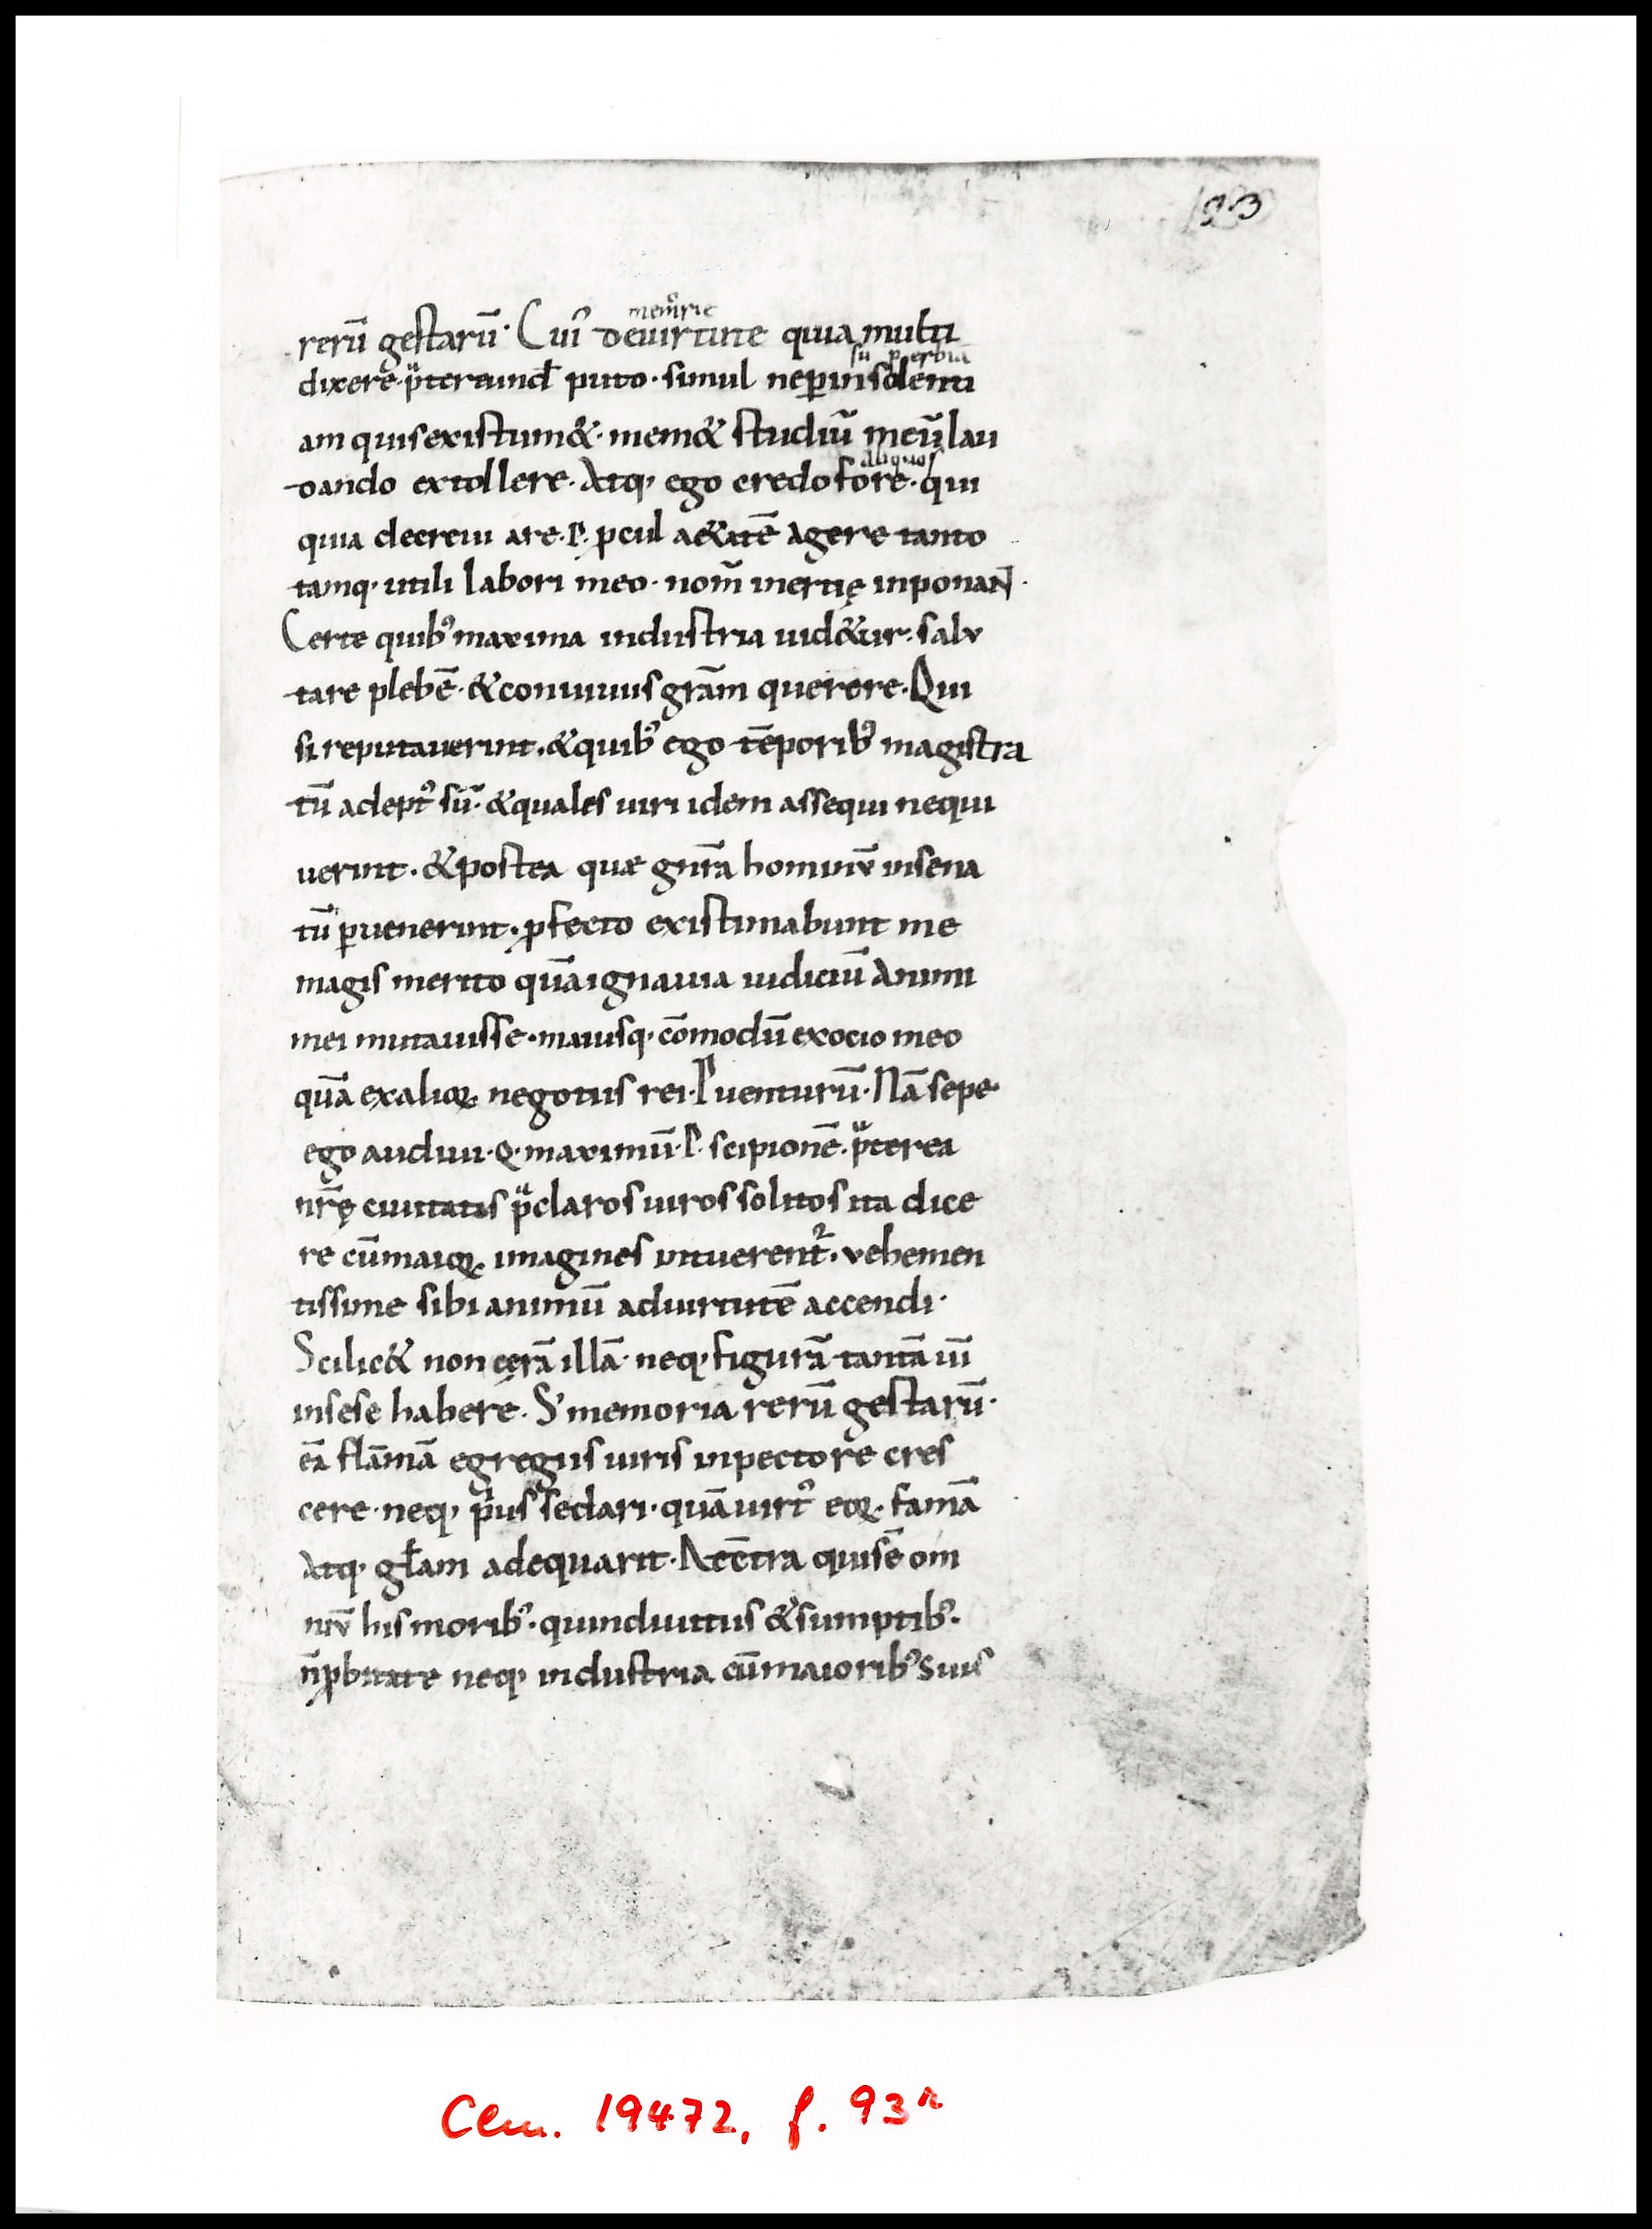 193
memorie
rerū gestarū· Cuiꝰ deuirtute quia multi
su perbia
dixere· p̄tereund̄ puto· simul neꝑinsolenti
am quisexistum&· mem& studiū meū lau
aliquos
dando extollere· Atq; ego credofore· qui
quia decreui a re·P· ꝓcul a&atē agere tanto
tamq; utili labori meo· nom̄ inertię inponaɴ·
Certe quibꝰ maxima industria uid&ur· salu
tare plebē· &conuiuiis gr̄am querere· Qui
si reputauerint· &quibꝰ ego tēporibꝰ magistra
tū adeptꝰ sū· &quales uiri idem assequi nequi
uerint· &postea quæ gn̄ra hominū insena
tū ꝑuenerint· ꝓfecto existimabunt me
magis merito quā ignauia iudiciū animi
mei mutauisse· maiusq; cōmodū exocio meo
quā exalioꝝ negotiis rei·P uenturū· Nā sepe
ego audiui·Q·maximū·P· scipionē· p̄terea
nr̄ę ciuitatis p̄claros uiros solitos ita dice
re cūmaioꝝ imagines intuerent᷑· vehemen
tissime sibi animū aduirtutē accendi·
Scilic& non cerā illā· neq; figurā tantā uī
insese habere· S; memoria rerū gestarū·
eā flāmā egregiis uiris inpectore cres
cere· neq; pͥus sedari· quā uirtꝰ eoꝝ famā
Atq; gł̄am adequarit· At cōtra quisē om
niū his moribꝰ· quindiuitiis &sumptibꝰ·
n̄ ꝓbitate neq; industria cūmaioribꝰ suis
Clm. 19472, f. 93r